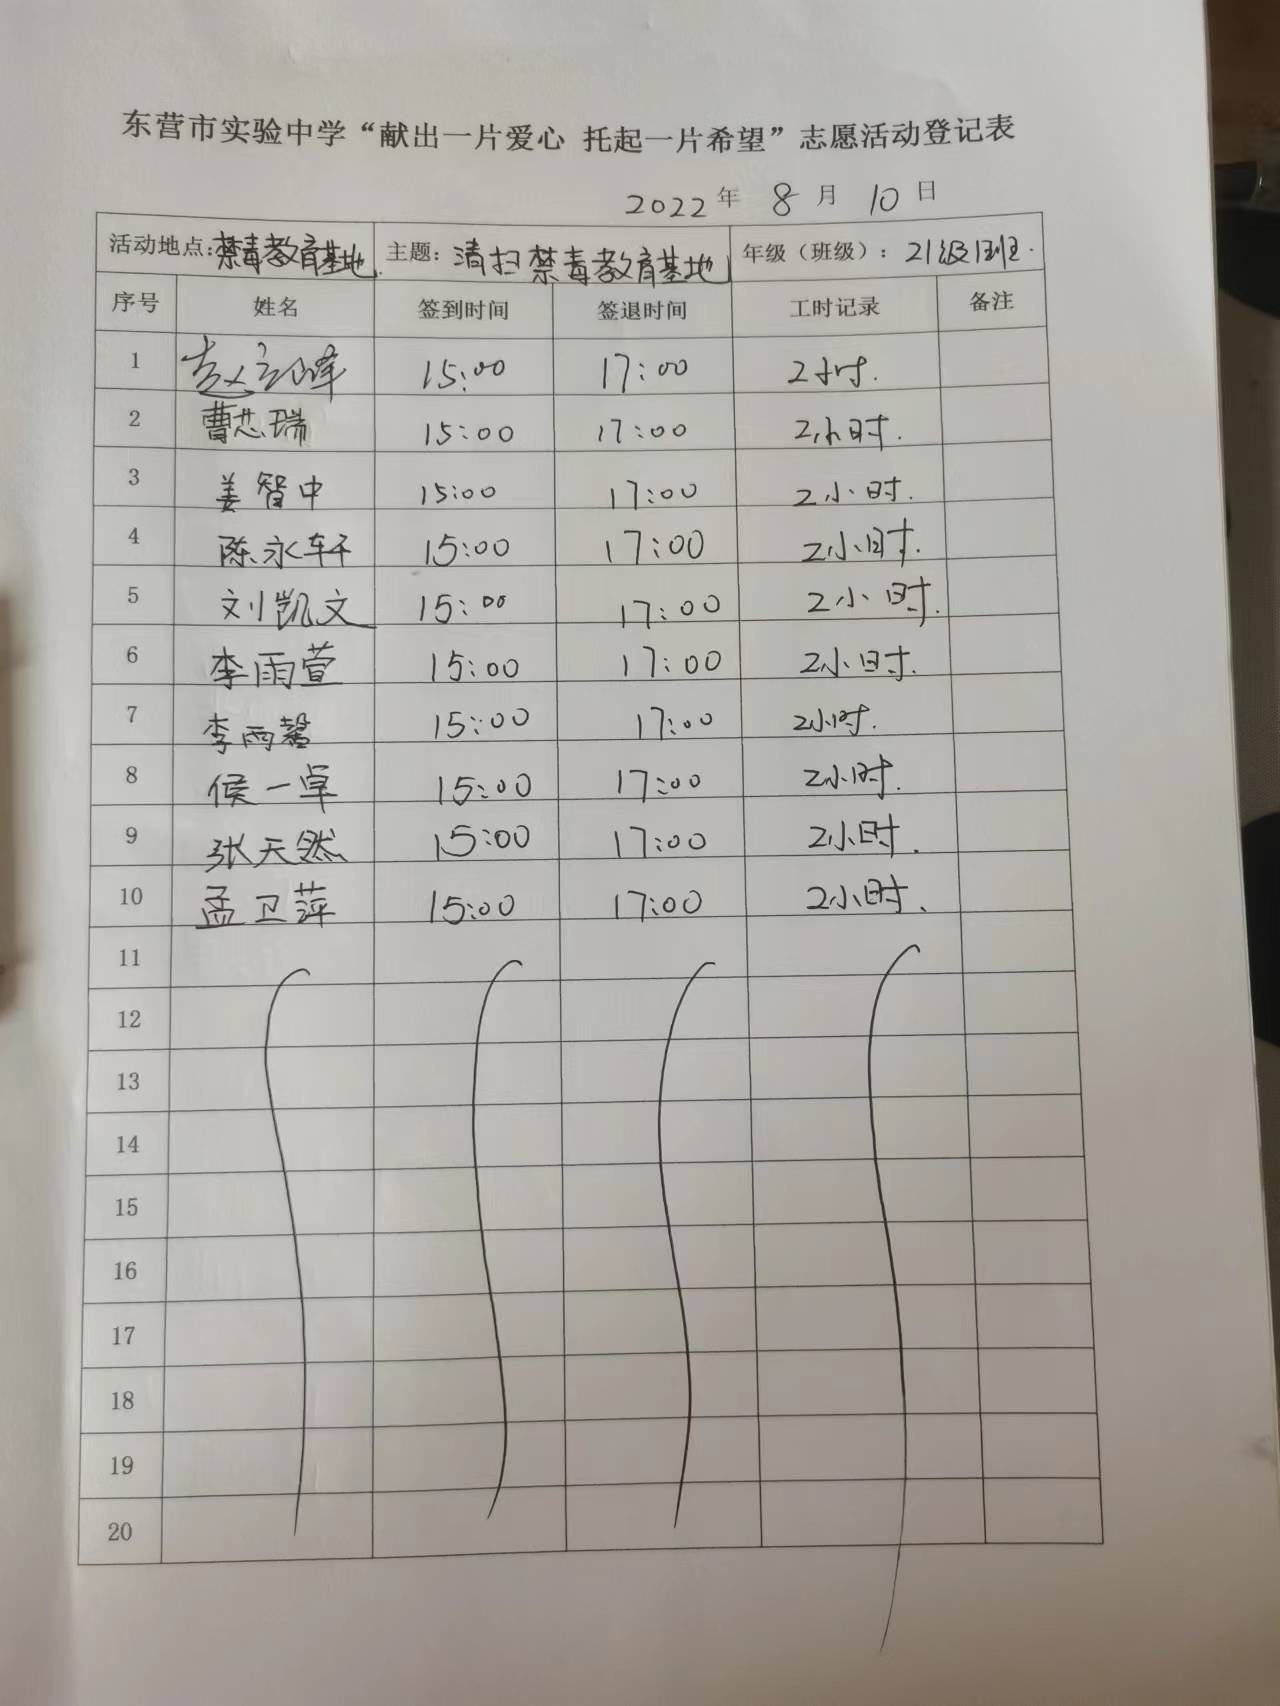 东营市实验中学“献出一片爱心 托起一片希望”志愿活动登记表
2022年 8月 10日
活动地点:禁毒教育基地 主题:清扫禁毒教育基地 年级（班级）:21级1班.
序号 姓名 签到时间 签退时间 工时记录 备注
1 赵 15:00 17:00 2小时.
2 曹芯瑞 15:00 17:00 2小时.
3 姜智中 15:00 17:00 2小时.
4 陈永轩 15:00 17:00 2小时.
5 刘凯文 15:00 17:00 2小时.
6 李雨萱 15:00 17:00 2小时.
7 李雨馨 15:00 17:00 2小时.
8 侯一卓 15:00 17:00 2小时.
9 张天然 15:00 17:00 2小时.
10 孟卫萍 15:00 17:00 2小时、
11
12
13
14
15
16
17
18
19
20